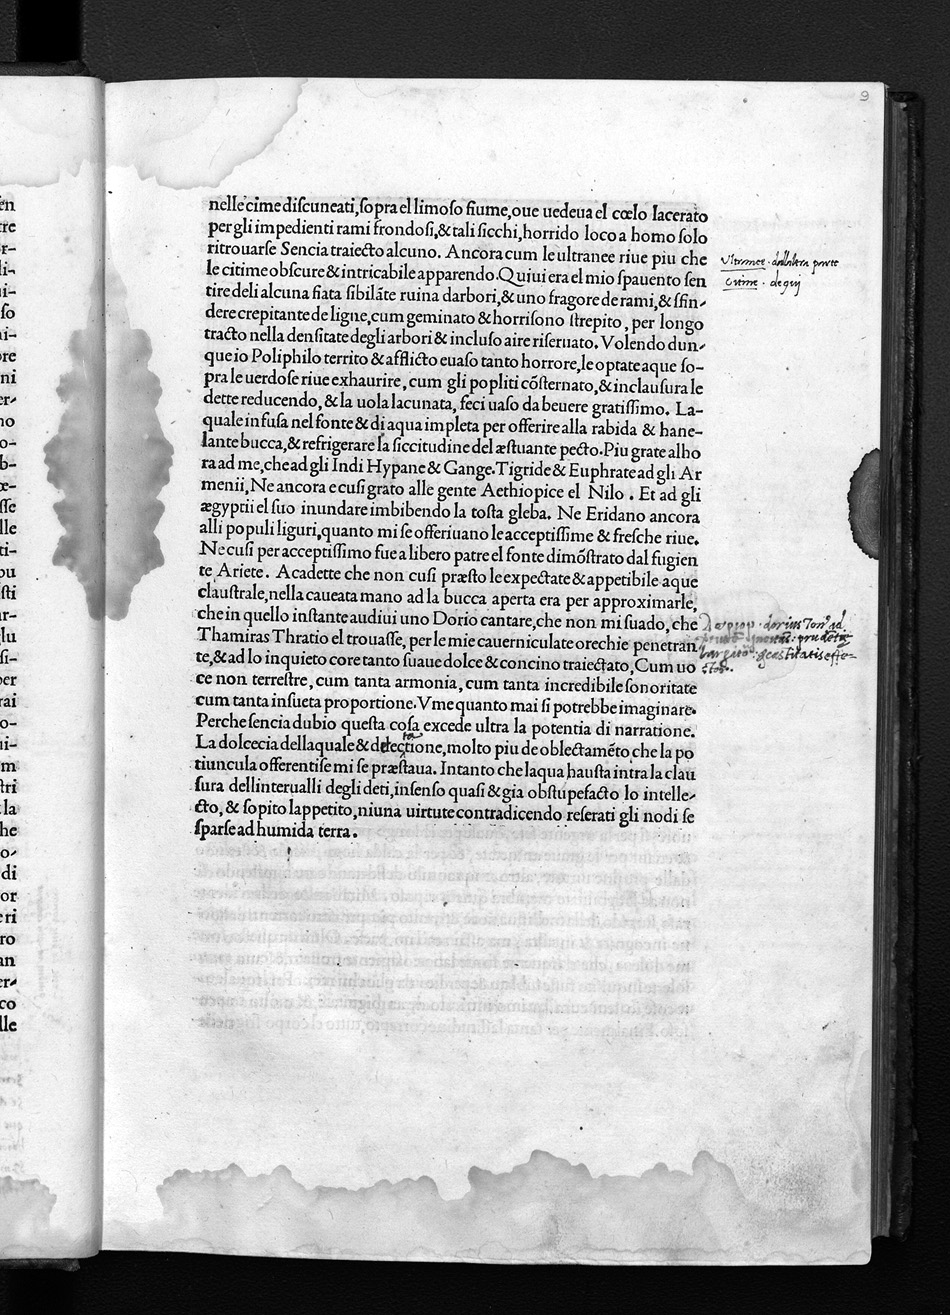 9
nelle cime discuneati, sopra el limoso fiume, oue uedeua el cœlo lacerato
per gli impedienti rami frondosi, & tali sicchi, horrido loco a homo solo
ritrouarse Sencia traiecto alcuno. Ancora cum le ultranee riue piu che
le citime obscure & intricabile apparendo. Quiui era el mio spauento sen
tire deli alcuna fiata sibilãte ruina darbori, & uno fragore de rami, & sfin-
dere crepitante de ligne, cum geminato & horrisono strepito, per longo
tracto nella densitate degli arbori & incluso aire riseruato. Volendo dun-
que io Poliphilo territo & afflicto euaso tanto horrore, le optate aque so-
pra le uerdose riue exhaurire, cum gli popliti cõsternato, & inclausura le
dette reducendo, & la uola lacunata, feci uaso da beuere gratissimo. La-
quale infusa nel fonte & di aqua impleta per offerire alla rabida & hane-
lante bucca, & refrigerare la siccitudine del æstuante pecto. Piu grate alho
ra ad me, che ad gli Indi Hypane & Gange. Tigride & Euphrate ad gli Ar
menii, Ne ancora e cusi grato alle gente Aethiopice el Nilo. Et ad gli
ægyptii el suo inundare imbibendo la tosta gleba. Ne Eridano ancora
alli populi liguri, quanto mi se offeriuano le acceptissime & fresche riue.
Ne cusi per acceptissimo fue a libero patre el fonte dimõstrato dal fugien
te Ariete. Acadette che non cusi præsto le expectate & appetibile aque
claustrale, nella caueata mano ad la bucca aperta era per approximarle,
che in quello instante audiui uno Dorio cantare, che non mi suado, che
Thamiras Thratio el trouasse, per le mie cauerniculate orechie penetran
te, & ad lo inquieto core tanto suaue dolce & concino traiectato, Cum uo
ce non terrestre, cum tanta armonia, cum tanta incredibile sonoritate
cum tanta insueta proportione. Vme quanto mai si potrebbe imaginare.
Perche sencia dubio questa cosa excede ultra la potentia di narratione.
La dolcecia dellaquale & delectatione, molto piu de oblectamẽto che la po
tiuncula offerentise mi se præstaua. Intanto che laqua hausta intra la clau
sura dellinterualli degli deti, insenso quasi & gia obstupefacto lo intelle-
cto, & sopito lappetito, niuna uirtute contradicendo reserati gli nodi se
sparse ad humida terra.
Ultranee · dallaltra parte
Citime · de qui